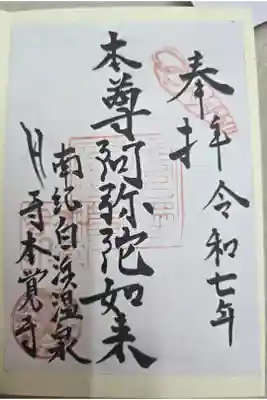 奉拝
令和七年
本尊阿弥陀如来
南紀白浜温泉
貝寺本覚寺